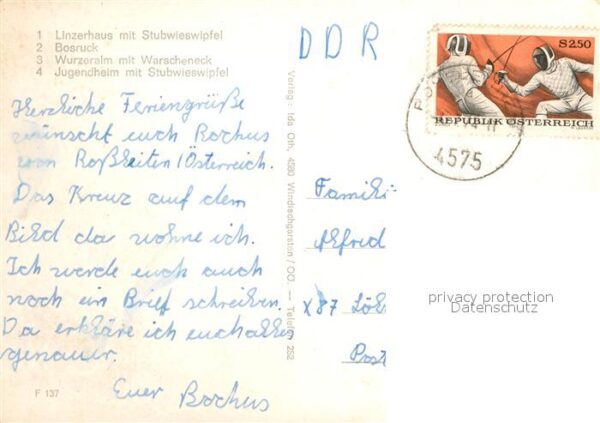 1 Linzerhaus mit Stubwieswipfel
2 Bosruck
3 Wurzeralm mit Warscheneck
4 Jugendheim mit Stubwieswipfel
Herzliche Feriengrüße
wünscht euch Rochus
von Roßleiten/Österreich.
Das Kreuz auf dem
Bild da wohne ich.
Ich werde euch auch
noch ein Brief schreiben.
Da erkläre ich euch alles
genauer.
Euer Rochus
F 137
Verlag: Ida Oth, 4580 Windischgarsten/OÖ. — Telefon 252
DDR
S2.50
REPUBLIK ÖSTERREICH
4575
Famili
Alfred
X 87 Löb
Post
privacy protection
Datenschutz